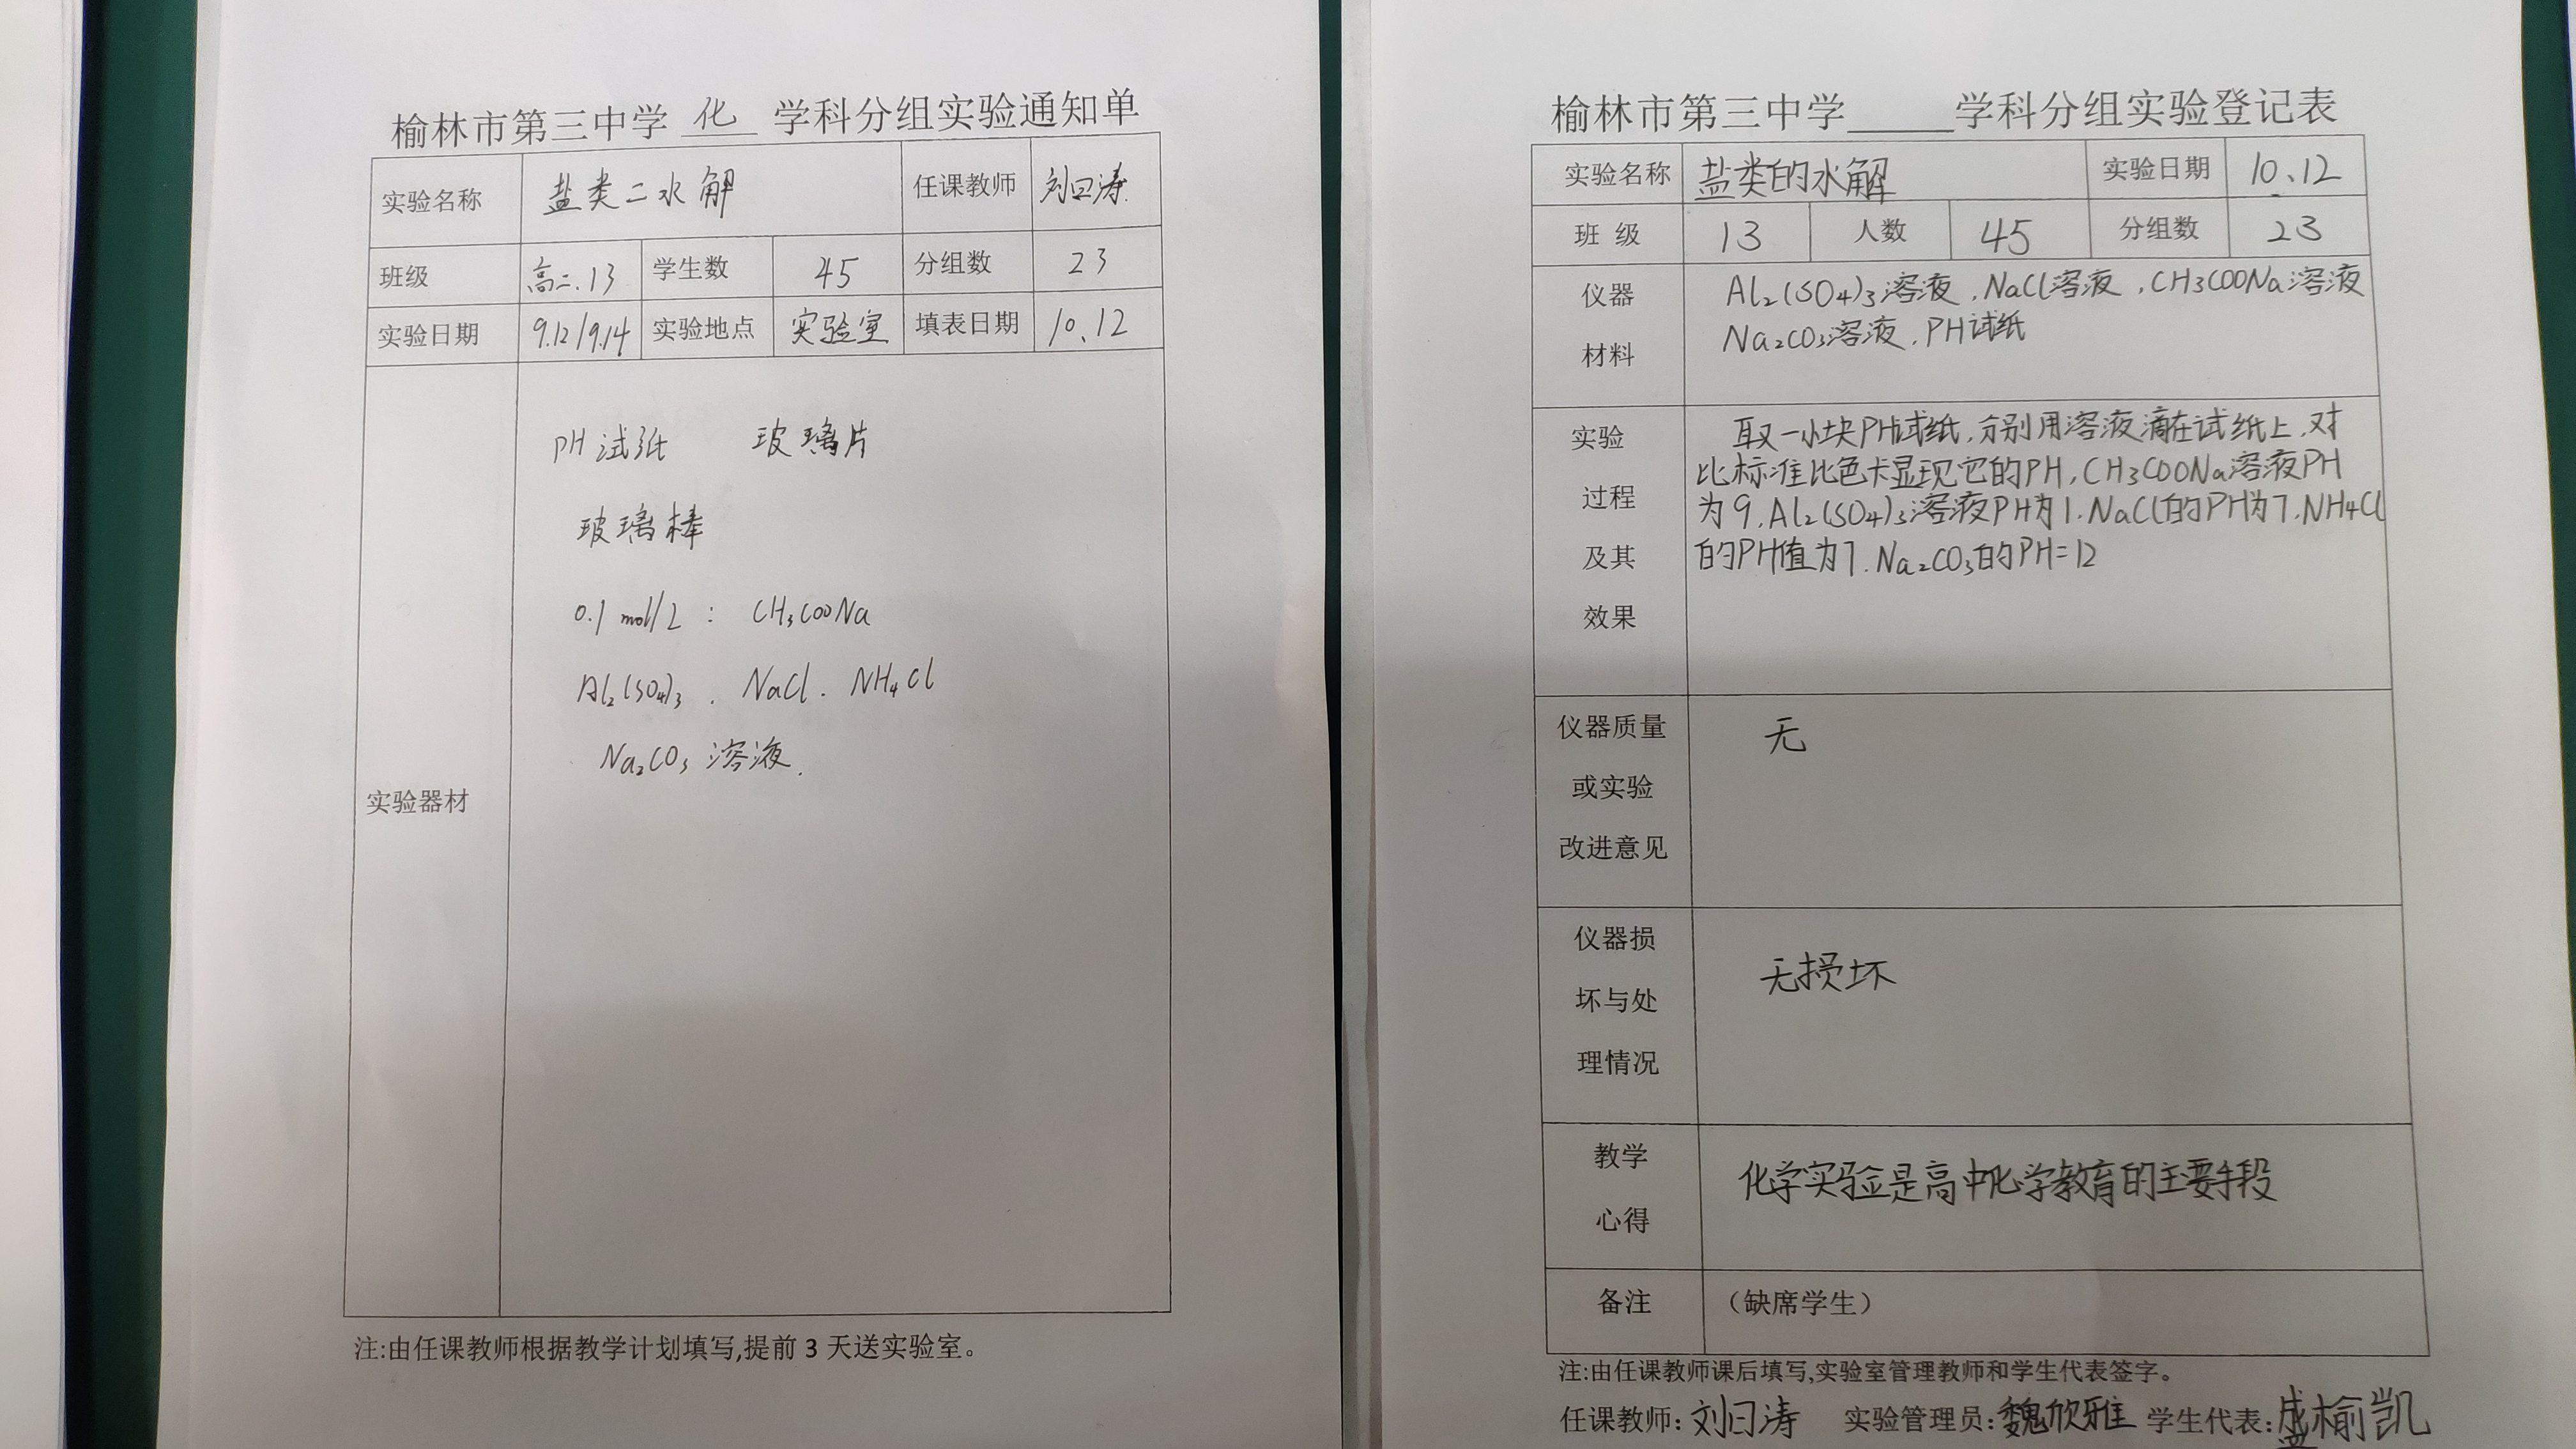 榆林市第三中学 化 学科分组实验通知单
实验名称 盐类二水解 任课教师 刘曰涛
班级 高二.13 学生数 45 分组数 23
实验日期 9.12/9.14 实验地点 实验室 填表日期 10.12
实验器材
PH试纸 玻璃片
玻璃棒
0.1 mol/L : CH₃COONa
Al₂(SO₄)₃ . NaCl . NH₄Cl
Na₂CO₃ 溶液.
注:由任课教师根据教学计划填写,提前 3 天送实验室。
榆林市第三中学_____学科分组实验登记表
实验名称 盐类的水解 实验日期 10.12
班 级 13 人数 45 分组数 23
仪器
材料
Al₂(SO₄)₃溶液,NaCl溶液,CH3COONa溶液
Na₂CO₃溶液,PH试纸
实验
过程
及其
效果
取一小块PH试纸,分别用溶液滴在试纸上,对
比标准比色卡显现它的PH,CH3COONa溶液PH
为9.Al₂(SO₄)₃溶液PH为1.NaCl的PH为7.NH4Cl
的PH值为7.Na₂CO₃的PH=12
仪器质量
或实验
改进意见
无
仪器损
坏与处
理情况
无损坏
教学
心得
化学实验是高中化学教育的主要手段
备注 (缺席学生)
注:由任课教师课后填写,实验室管理教师和学生代表签字。
任课教师:刘曰涛 实验管理员:魏欣雅 学生代表:盛榆凯